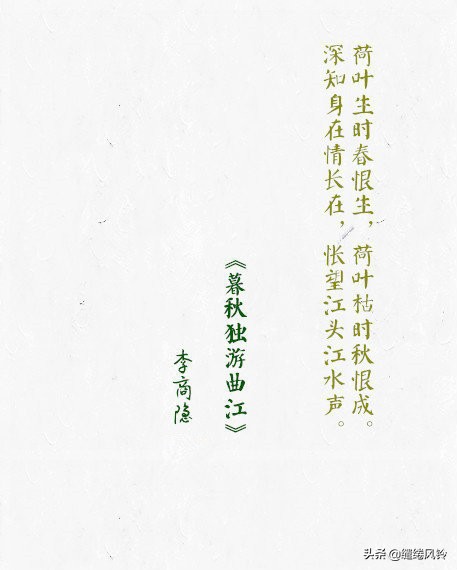 荷叶生时春恨生，荷叶枯时秋恨成。
深知身在情长在，怅望江头江水声。
《暮秋独游曲江》
李商隐
头条 @缱绻风铃